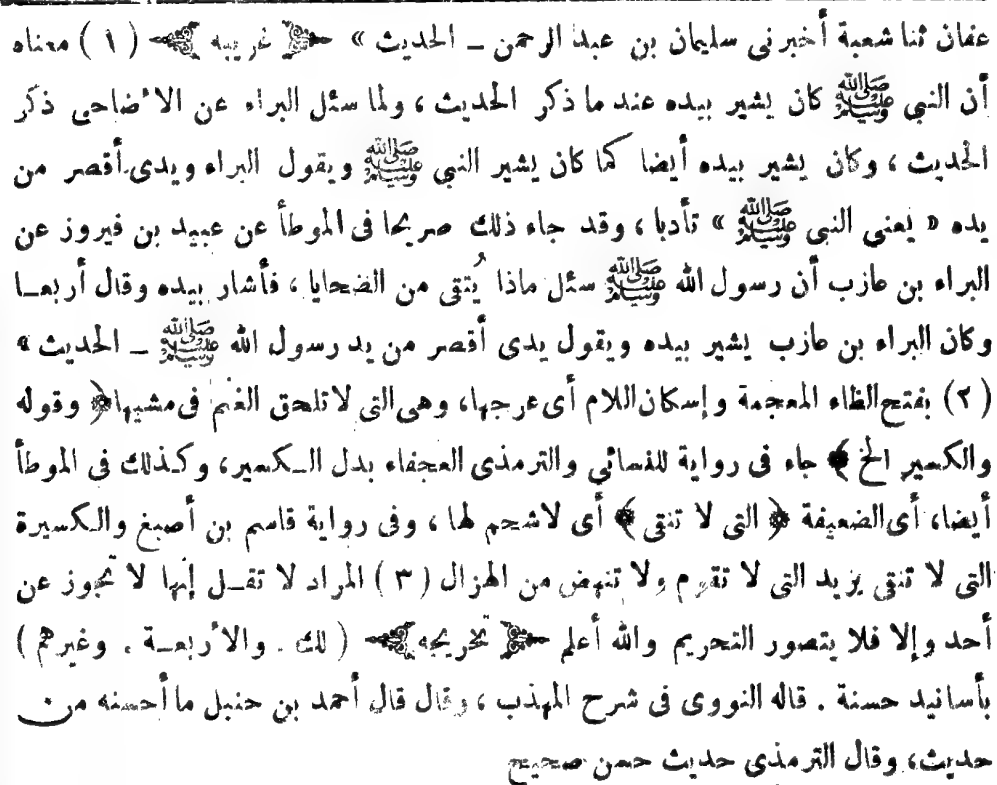 عفان ثنا شعبة أخبرنى سليمان بن عبد الرحمن ــ الحديث » ﴿ غريبه ﴾ ( ١ ) معناه
أن النبى ﷺ كان يشير بيده عند ما ذكر الحديث ، ولما سئل البراء عن الاضاحى ذكر
الحديث ، وكان يشير بيده أيضا كما كان يشير النبي ﷺ ويقول البراء ويدى أقصر من
يده « يعنى النبى ﷺ » تأدبا ، وقد جاء ذلك صريحا فى الموطأ عن عبيد بن فيروز عن
البراء بن عازب أن رسول الله ﷺ سئل ماذا يُتقى من الضحايا ، فأشار بيده وقال أربعــا
وكان البراء بن عازب يشير بيده ويقول يدى أقصر من يد رسول الله ﷺ ــ الحديث »
(٢) بفتح الظاء المعجمة وإسكان اللام أى عرجها، وهى التى لا تلحق الغنم فى مشيها ﴿ وقوله
والكسير الخ ﴾ جاء فى رواية للنسائي والترمذى العجفاء بدل الــكسير، وكذلك فى الموطأ
أيضا، أى الضعيفة ﴿ التى لا تنقى ﴾ أى لا شحم لها ، وفى رواية قاسم بن أصبغ والــكسيرة
التى لا تنقى يزيد التى لا تقوم ولا تنهض من الهزال ( ٣ ) المراد لا تقــل إنها لا تجوز عن
أحد وإلا فلا يتصور التحريم والله أعلم ﴿ تخريجه ﴾ ( لك . والأربعــة . وغيرهم )
بأسانيد حسنة . قاله النووى فى شرح المهذب ، وقال قال أحمد بن حنبل ما أحسنه من
حديث، وقال الترمذى حديث حسن صحيح